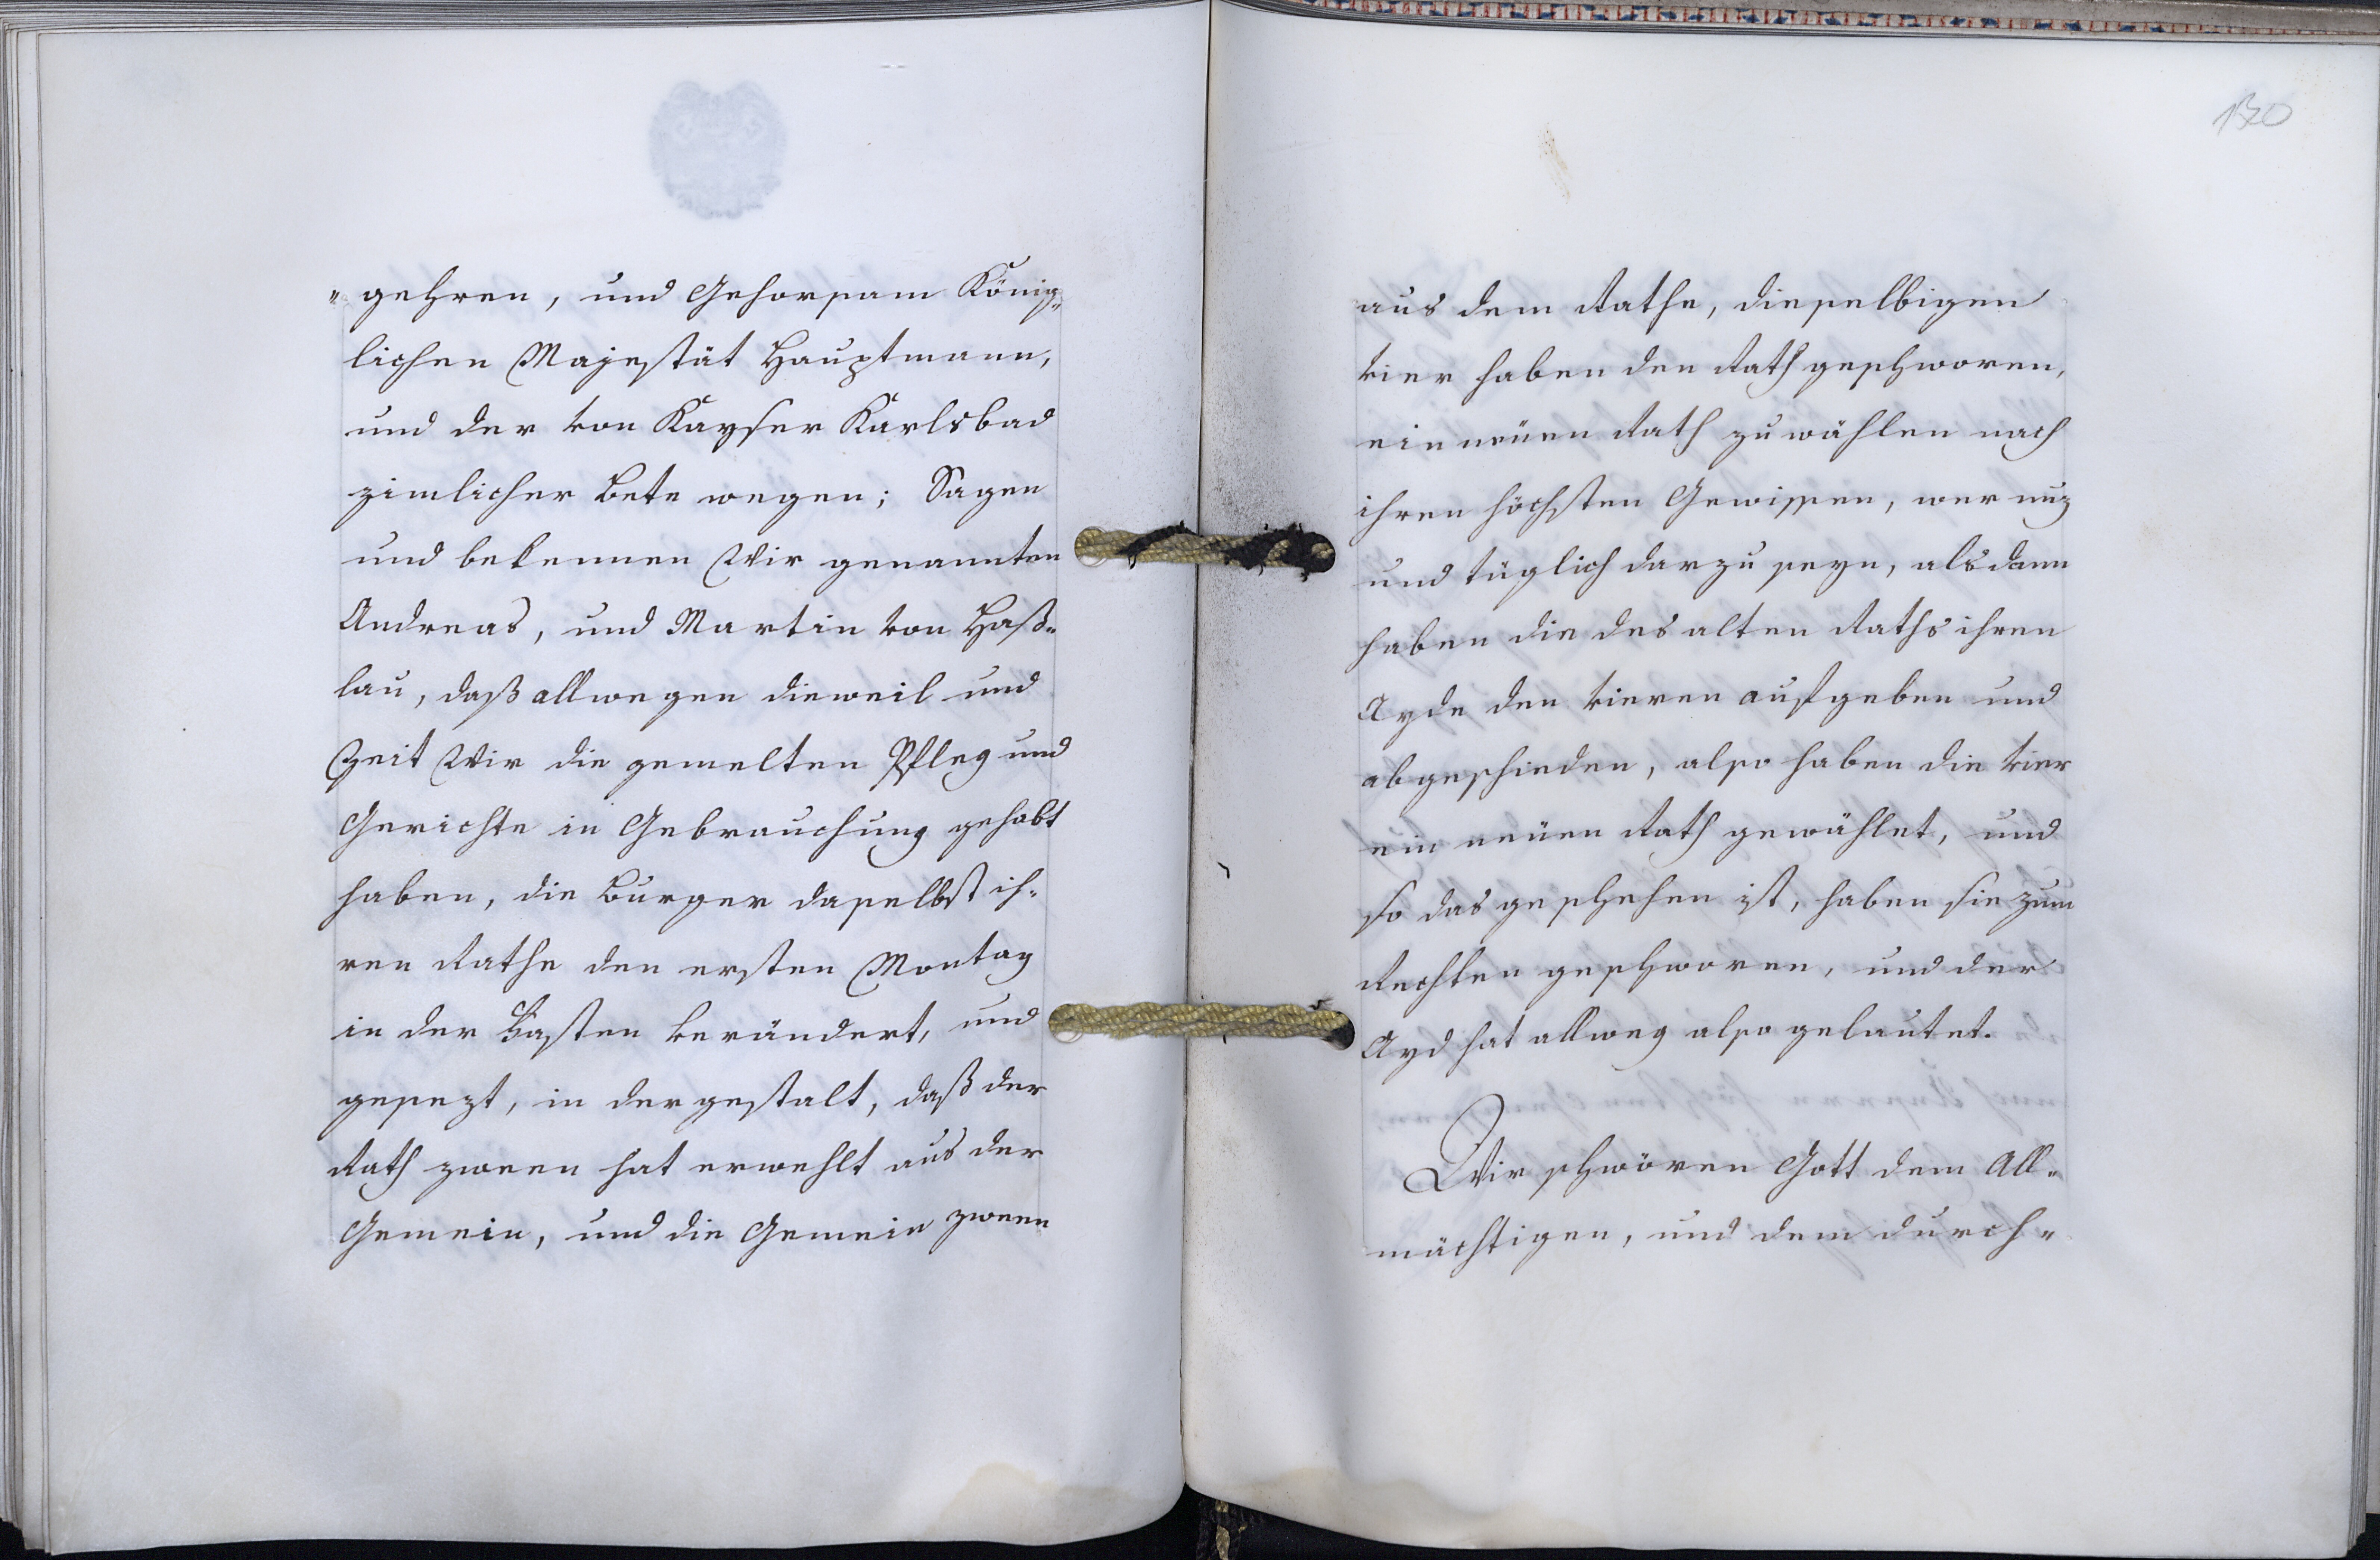 "gehren, und Gehorsam König„
lichen Majestät Hauptmann,
und der von Kayser Karlsbad
zimlicher Bete wegen; Sagen
und bekennen Wir genannten
Andreas, und Martin von Haß„
lau, daß allwegen dieweil und
Zeit Wir die gemelten Pfleg und
Gerichte in Gebrauchung gehabt
haben, die Burger daselbst ih„
ren Rathe den ersten Montag
in der Fasten verändert, und
gesezt, in der gestalt, daß der
Rath zween hat erwehlt aus der
Gemein, und die Gemein zween
130
aus dem Rathe, dieselbigen
vier haben den Rath geschworen,
ein neüen Rath zu wählen nach
ihren höchsten Gewissen, wer nuz
und tüglich darzu seyn, alsdann
haben die des alten Raths ihren
Ayde den vieren aufgeben und
abgeschieden, also haben die vier
ein neüen Rath gewählet, und
so das geschehen ist, haben sie zum
Rechten geschworen, und der
Ayd hat allweg also gelautet.
Wir schwören Gott dem All„
mächtigen, und dem durch„